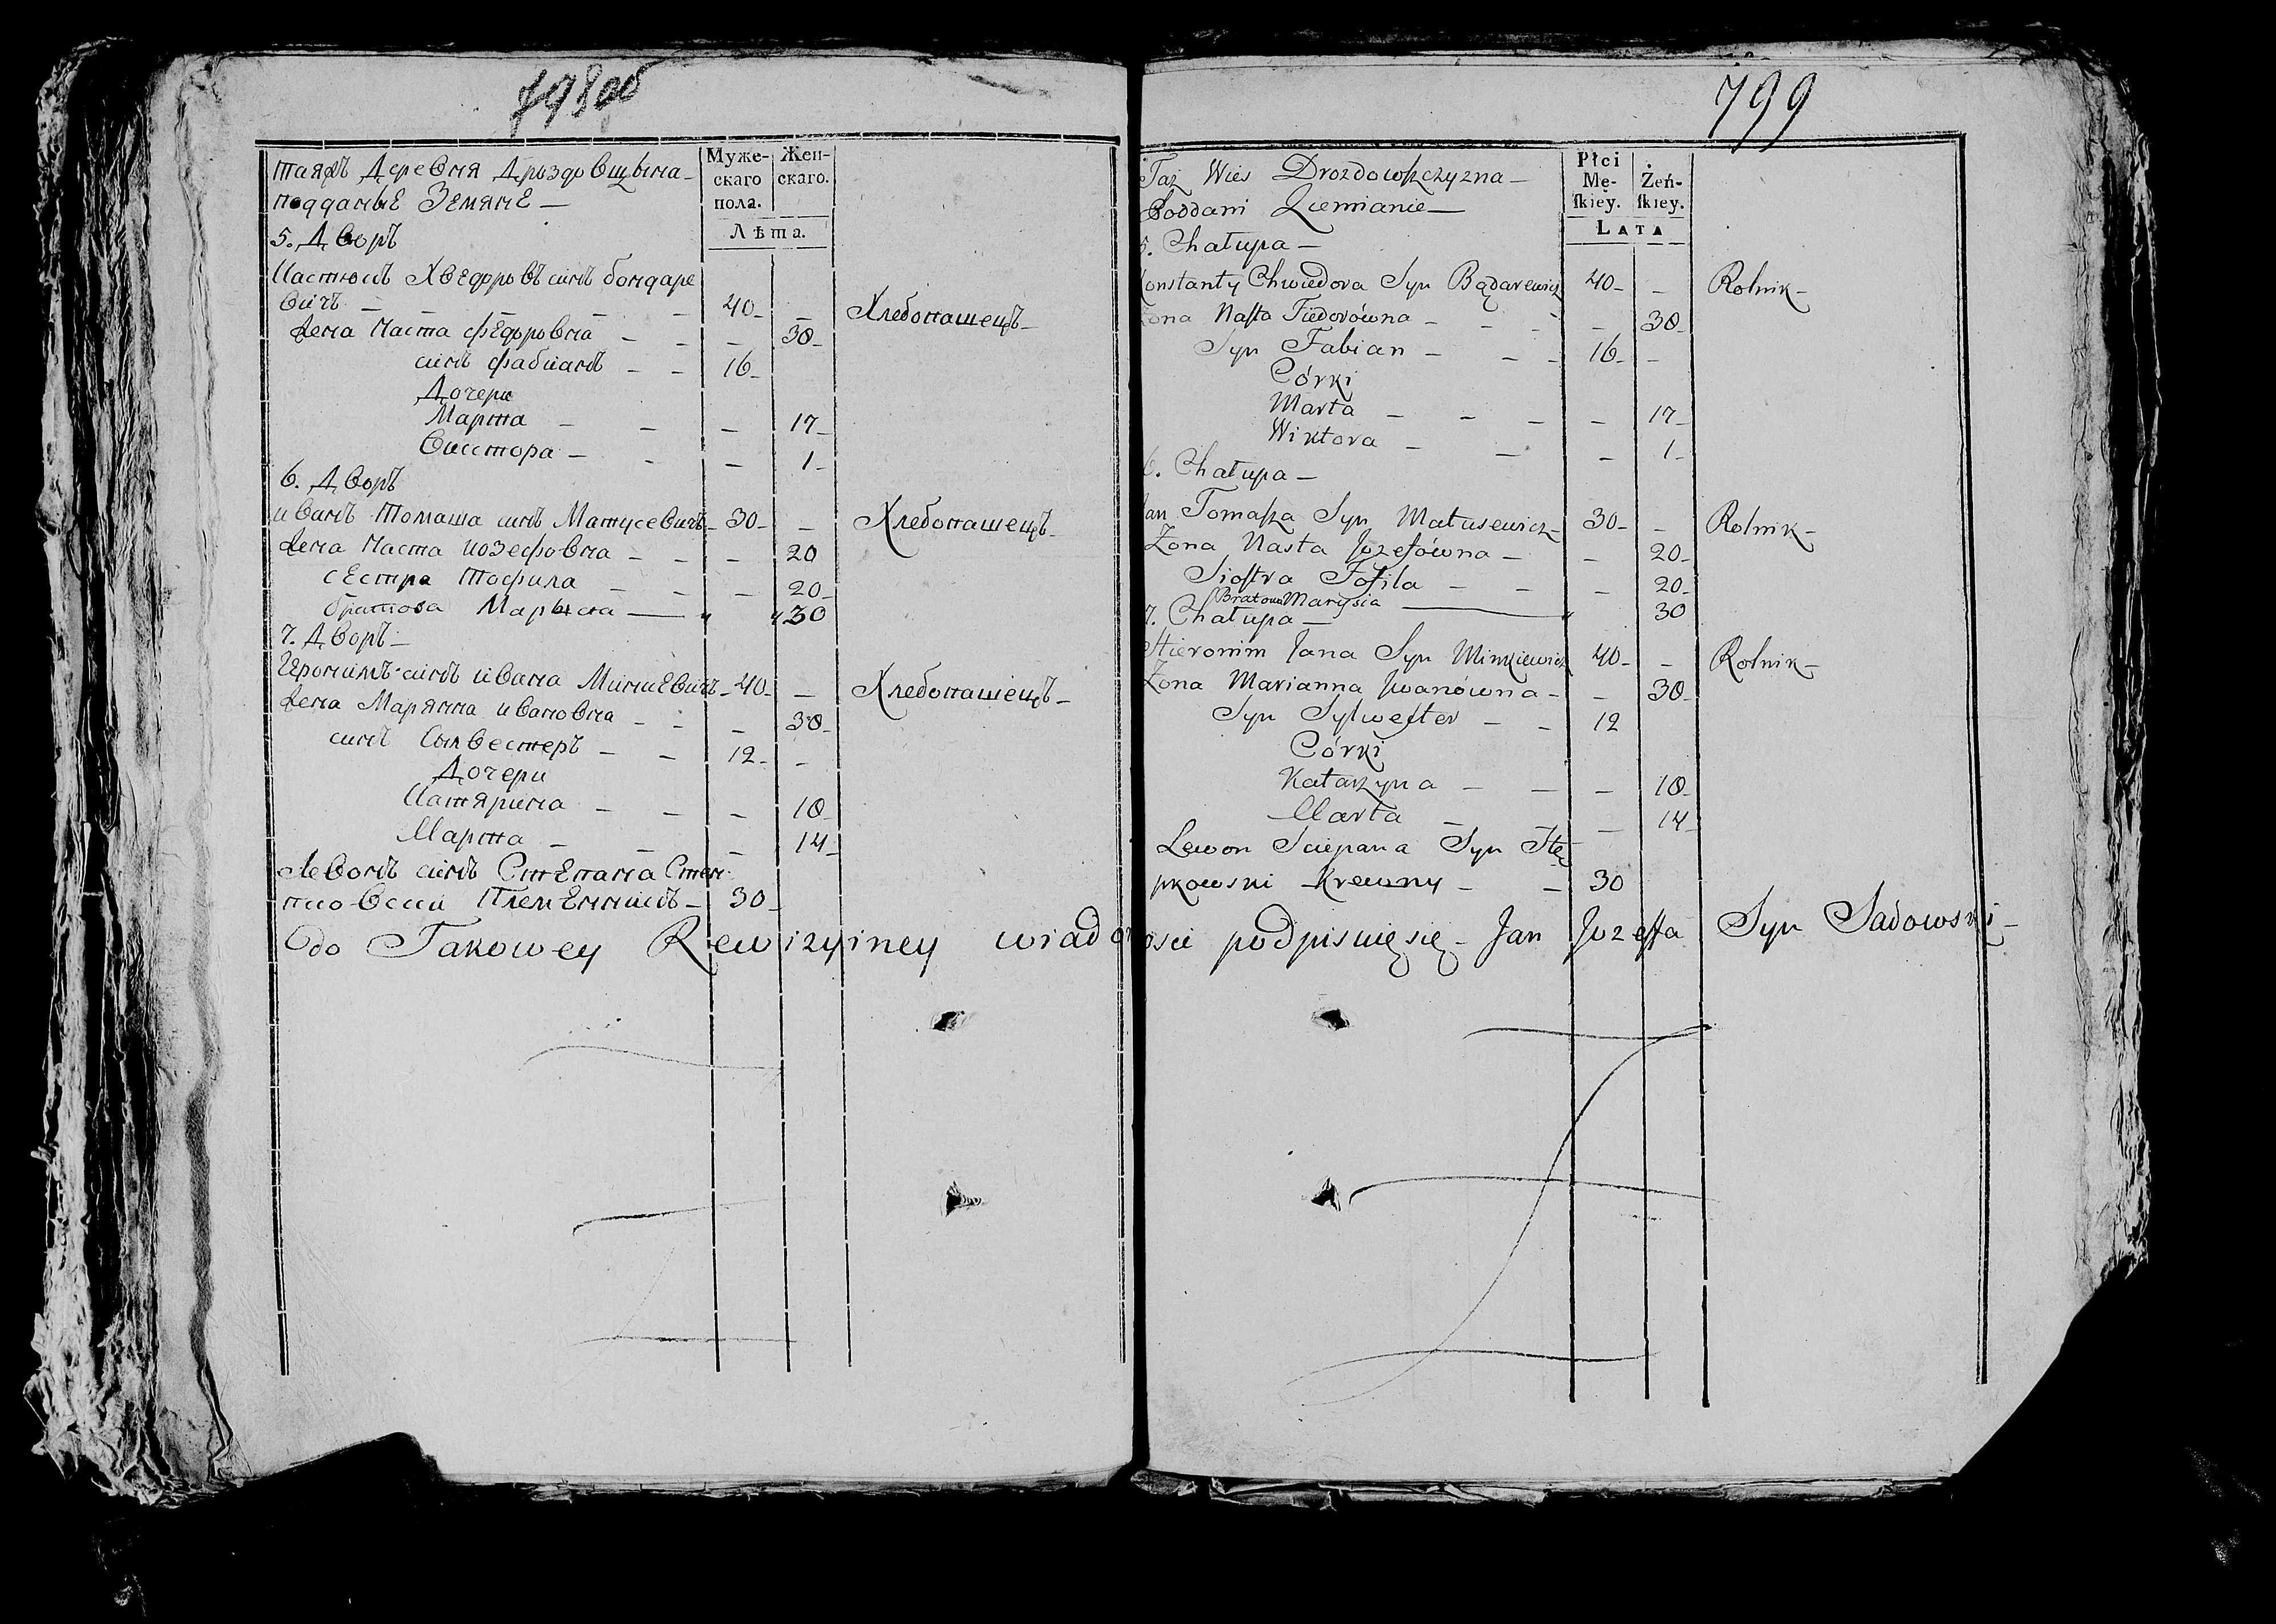 798об
таяжъ Деревня Дрыздовщына
поддание Земяне
Муже-
скаго
пола.
Жен-
скаго.
Лѣта.
5. Дворъ
Кастюкъ Хведоровъ синъ бондаре
вичъ 40 Хлебопашецъ
жена Наста Федоровна 30
синъ Фабианъ 16
Дочери
Марта 17
Виктора 1
6. Дворъ
иванъ Томаша синъ Матусевичъ 30 Хлебопашецъ
жена Наста иозефовна 20
сестра Тофила 20
братова Марыся " " 30
7. Дворъ
Геронимъ синъ ивана Минкевичъ 40 Хлебопашецъ
жена Марянна ивановна 30
синъ Сылвестеръ 12
Дочери
Катярина 18
Марта 14
Левонъ синъ Степана Стем
пковски Племенникъ 30
799
Taż Wieś Drozdowszczyzna
Poddani Ziemianie
Płci
Mę-
skiey.
Żeń-
skiey.
LATA
5. Chałupa
Konstanty Chwiedora Syn Bądarewicz 40 Rolnik
Żona Nasta Fiedorówna 30
Syn Fabian 16
Córki
Marta 17
Wiktora 1
6. Chałupa
Jan Tomasza Syn Matusewicz 30 Rolnik
Żona Nasta Jozefówna 20
Siostra Tofila 20
Bratowa Marysia " 30
7. Chałupa
Hieronim Jana Syn Minkiewicz 40 Rolnik
Żona Marianna Jwanówna 30
Syn Sylwester 12
Córki
Katarzyna 18
Marta 14
Lewon Sciepana Syn Stę
pkowski Krewny 30
do Takowey Rewizyiney wiadomości podpisuię się Jan Jozefa Syn Sadowski